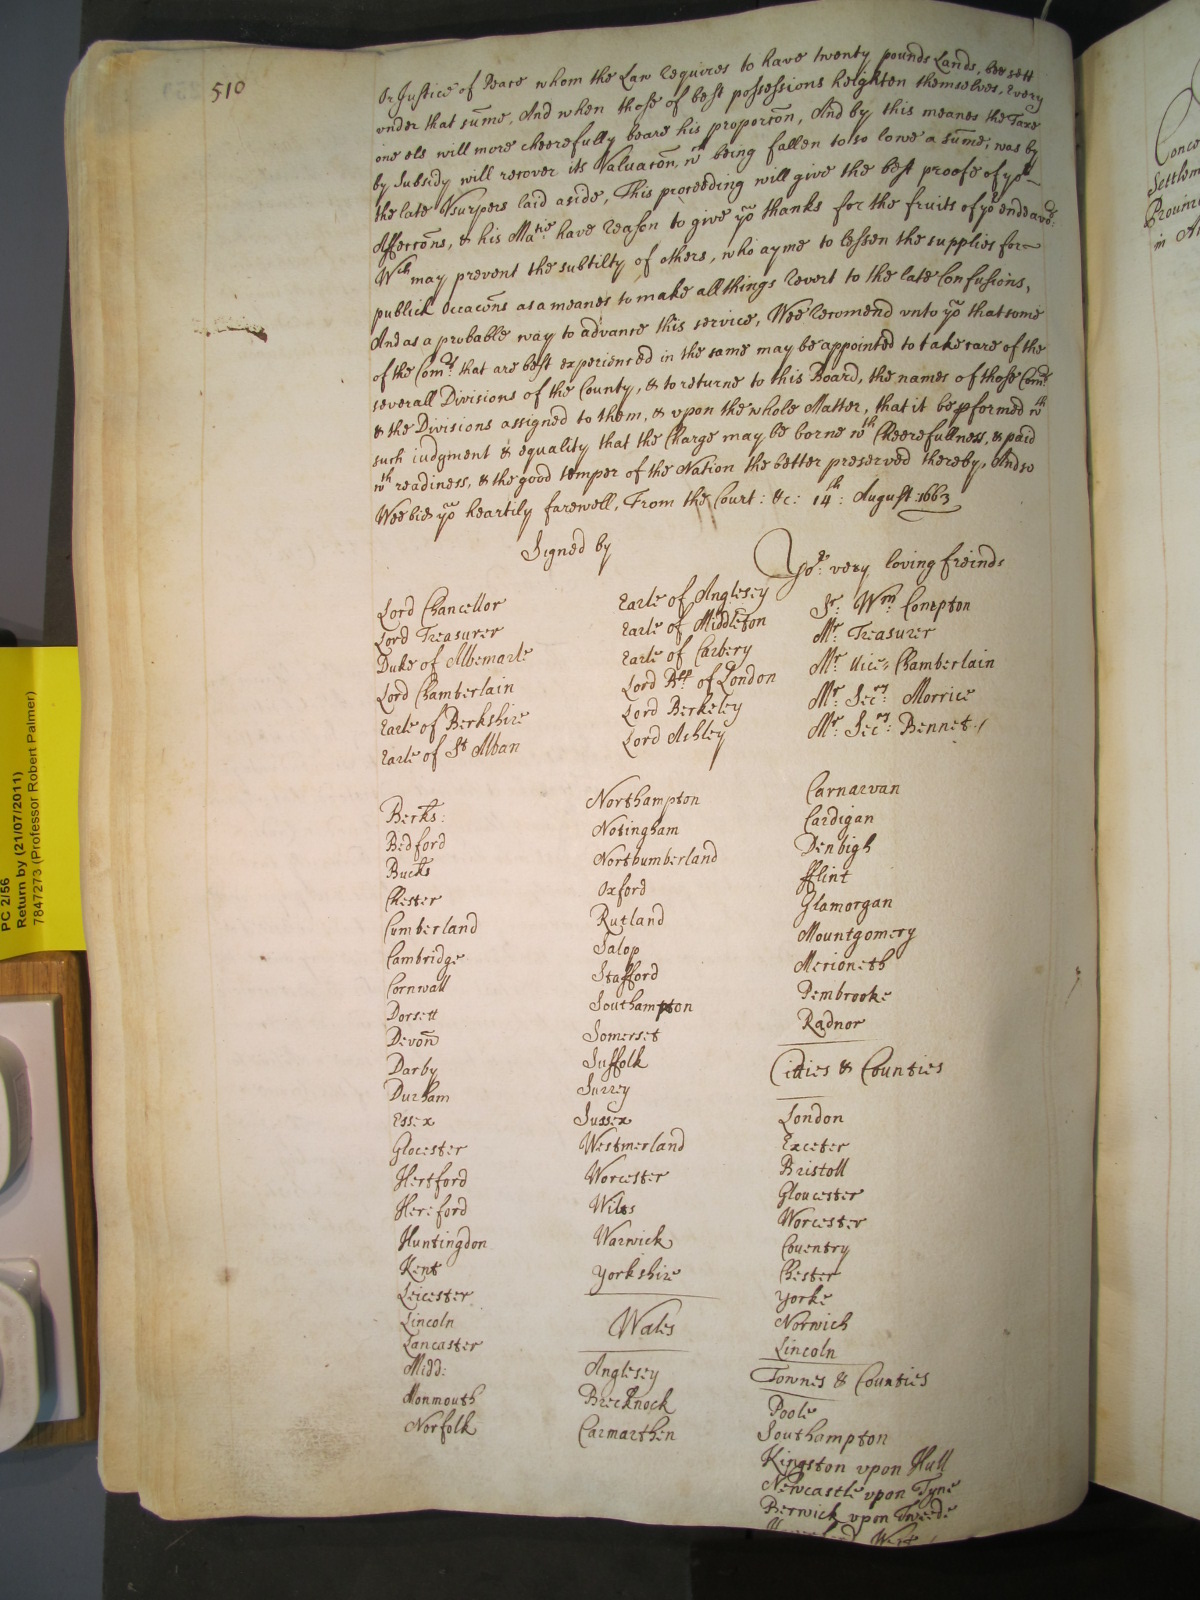 510
Or Justice of Peace whom the Law requires to have twenty pounds Lands, bee sett
vnder that sum̃e, And when those of best possessions heighten themselves, Every
one els will more cheerefully beare his proporcõn, And by this meanes the Taxe
by Subsidy will recover its Valuacõn, wch being fallen to so lowe a sum̃e, was by
the late Vsurpers laid aside, This proceeding will give the best proofe of yor
Affeccõns, & his Matie: have reason to give yõ thanks for the fruits of yor endeavrs:
Wch may prevent the subtilty of others, who ayme to lessen the supplies for
publick Occacõns as a meanes to make all things revert to the late Confusions,
And as a probable way to advance this service, Wee recomend vnto yõ that some
of the Comrs that are best experienced in the same may be appointed to take care of the
severall Divisions of the County, & to returne to this Board, the names of those Comrs
& the Divisions assigned to them, & vpon the whole Matter, that it be pformed wth
such iudgment & equality that the Charge may be borne wth Cheerefullness, & paid
wth readiness, & the good temper of the Nation the better preserved thereby, And so
Wee bid yõ heartily farewell, From the Court: &c: 14th: August: 1663
Signed by
Yor: very loving freinds
Lord Chancellor
Lord Treasurer
Duke of Albemarle
Lord Chamberlain
Earle of Berkshire
Earle of St Alban
Earle of Anglesey
Earle of Middleton
Earle of Carbery
Lord Bpp of London
Lord Berkeley
Lord Ashley
Sr: Wm: Compton
Mr: Treasurer
Mr: Vice-Chamberlain
Mr: Secry: Morrice
Mr: Secry: Bennet./
Berks:
Bedford
Bucks
Chester
Cumberland
Cambridge
Cornwall
Dorsett
Devoñ
Darby
Durham
Essex
Glocester
Hertford
Hereford
Huntingdon
Kent
Leicester
Lincoln
Lancaster
Midd:
Monmouth
Norfolk
Northampton
Notingham
Northumberland
Oxford
Rutland
Salop
Stafford
Southampton
Somerset
Suffolk
Surrey
Sussex
Westmerland
Worcester
Wilts
Warwick
Yorkshire
Wales
Anglesey
Brecknock
Carmarthen
Carnarvan
Cardigan
Denbigh
fflint
Glamorgan
Mountgomery
Merioneth
Pembrooke
Radnor
Citties & Counties
London
Exceter
Bristoll
Gloucester
Worcester
Couentry
Chester
Yorke
Norwich
Lincoln
Townes & Counties
Poole
Southampton
Kingston vpon Hull
Newcastle vpon Tyne
Berwick vpon Tweede
West
PC 2/56
Return by (21/07/2011)
7847273 (Professor Robert Palmer)